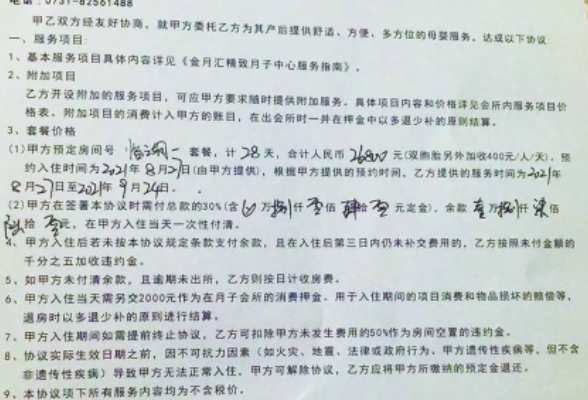 电话：0731-82561488
甲乙双方经友好协商，就甲方委托乙方为其产后提供舒适、方便、多方位的母婴服务，达成以下协议：
一、服务项目：
1、基本服务项目具体内容详见《金月汇精致月子中心服务指南》。
2、附加项目
乙方开设附加的服务项目，可应甲方要求随时提供附加服务。具体项目内容和价格详见会所内服务项目价
格表。附加项目的消费计入甲方的账目，在出会所时一并在押金中以多退少补的原则结算。
3、套餐价格
(1)甲方预定房间号 套餐，计 28 天，合计人民币 26800 元(双胞胎另外加收400元/人/天)。预
约入住时间为 2021年 8 月 27日(由甲方提供)，根据甲方提供的预约时间，乙方提供的服务时间为 2021年
8 月 27 日至 2021年 9 月 24 日。
(2)甲方在签署本协议时需付总款的30%(含 万 捌 仟 零 佰 肆 拾 零 元定金)，余款 壹 万 捌 仟 柒 佰
陆 拾 零 元，在甲方入住当天一次性付清。
4、甲方入住后若未按本协议规定条款支付余款，且在入住后第三日内仍未补交费用的，乙方按照未付金额的
千分之五加收违约金。
5、如甲方未付清余款，且逾期未出所，乙方则按日计收房费。
6、甲方入住当天需另交2000元作为在月子会所的消费押金。用于入住期间的项目消费和物品损坏的赔偿等，
退房时以多退少补的原则进行结算。
7、甲方入住期间如需提前终止协议，乙方可扣除甲方未发生费用的50%作为房间空置的违约金。
8、协议实际生效日期之前，因不可抗力因素（如火灾、地震、法律或政府行为、甲方遗传性疾病等，但不含
非遗传性疾病）导致甲方无法正常入住，甲方可解除协议，乙方应将甲方所缴纳的预定金退还。
9、本协议项下所有服务内容均为不含税价。